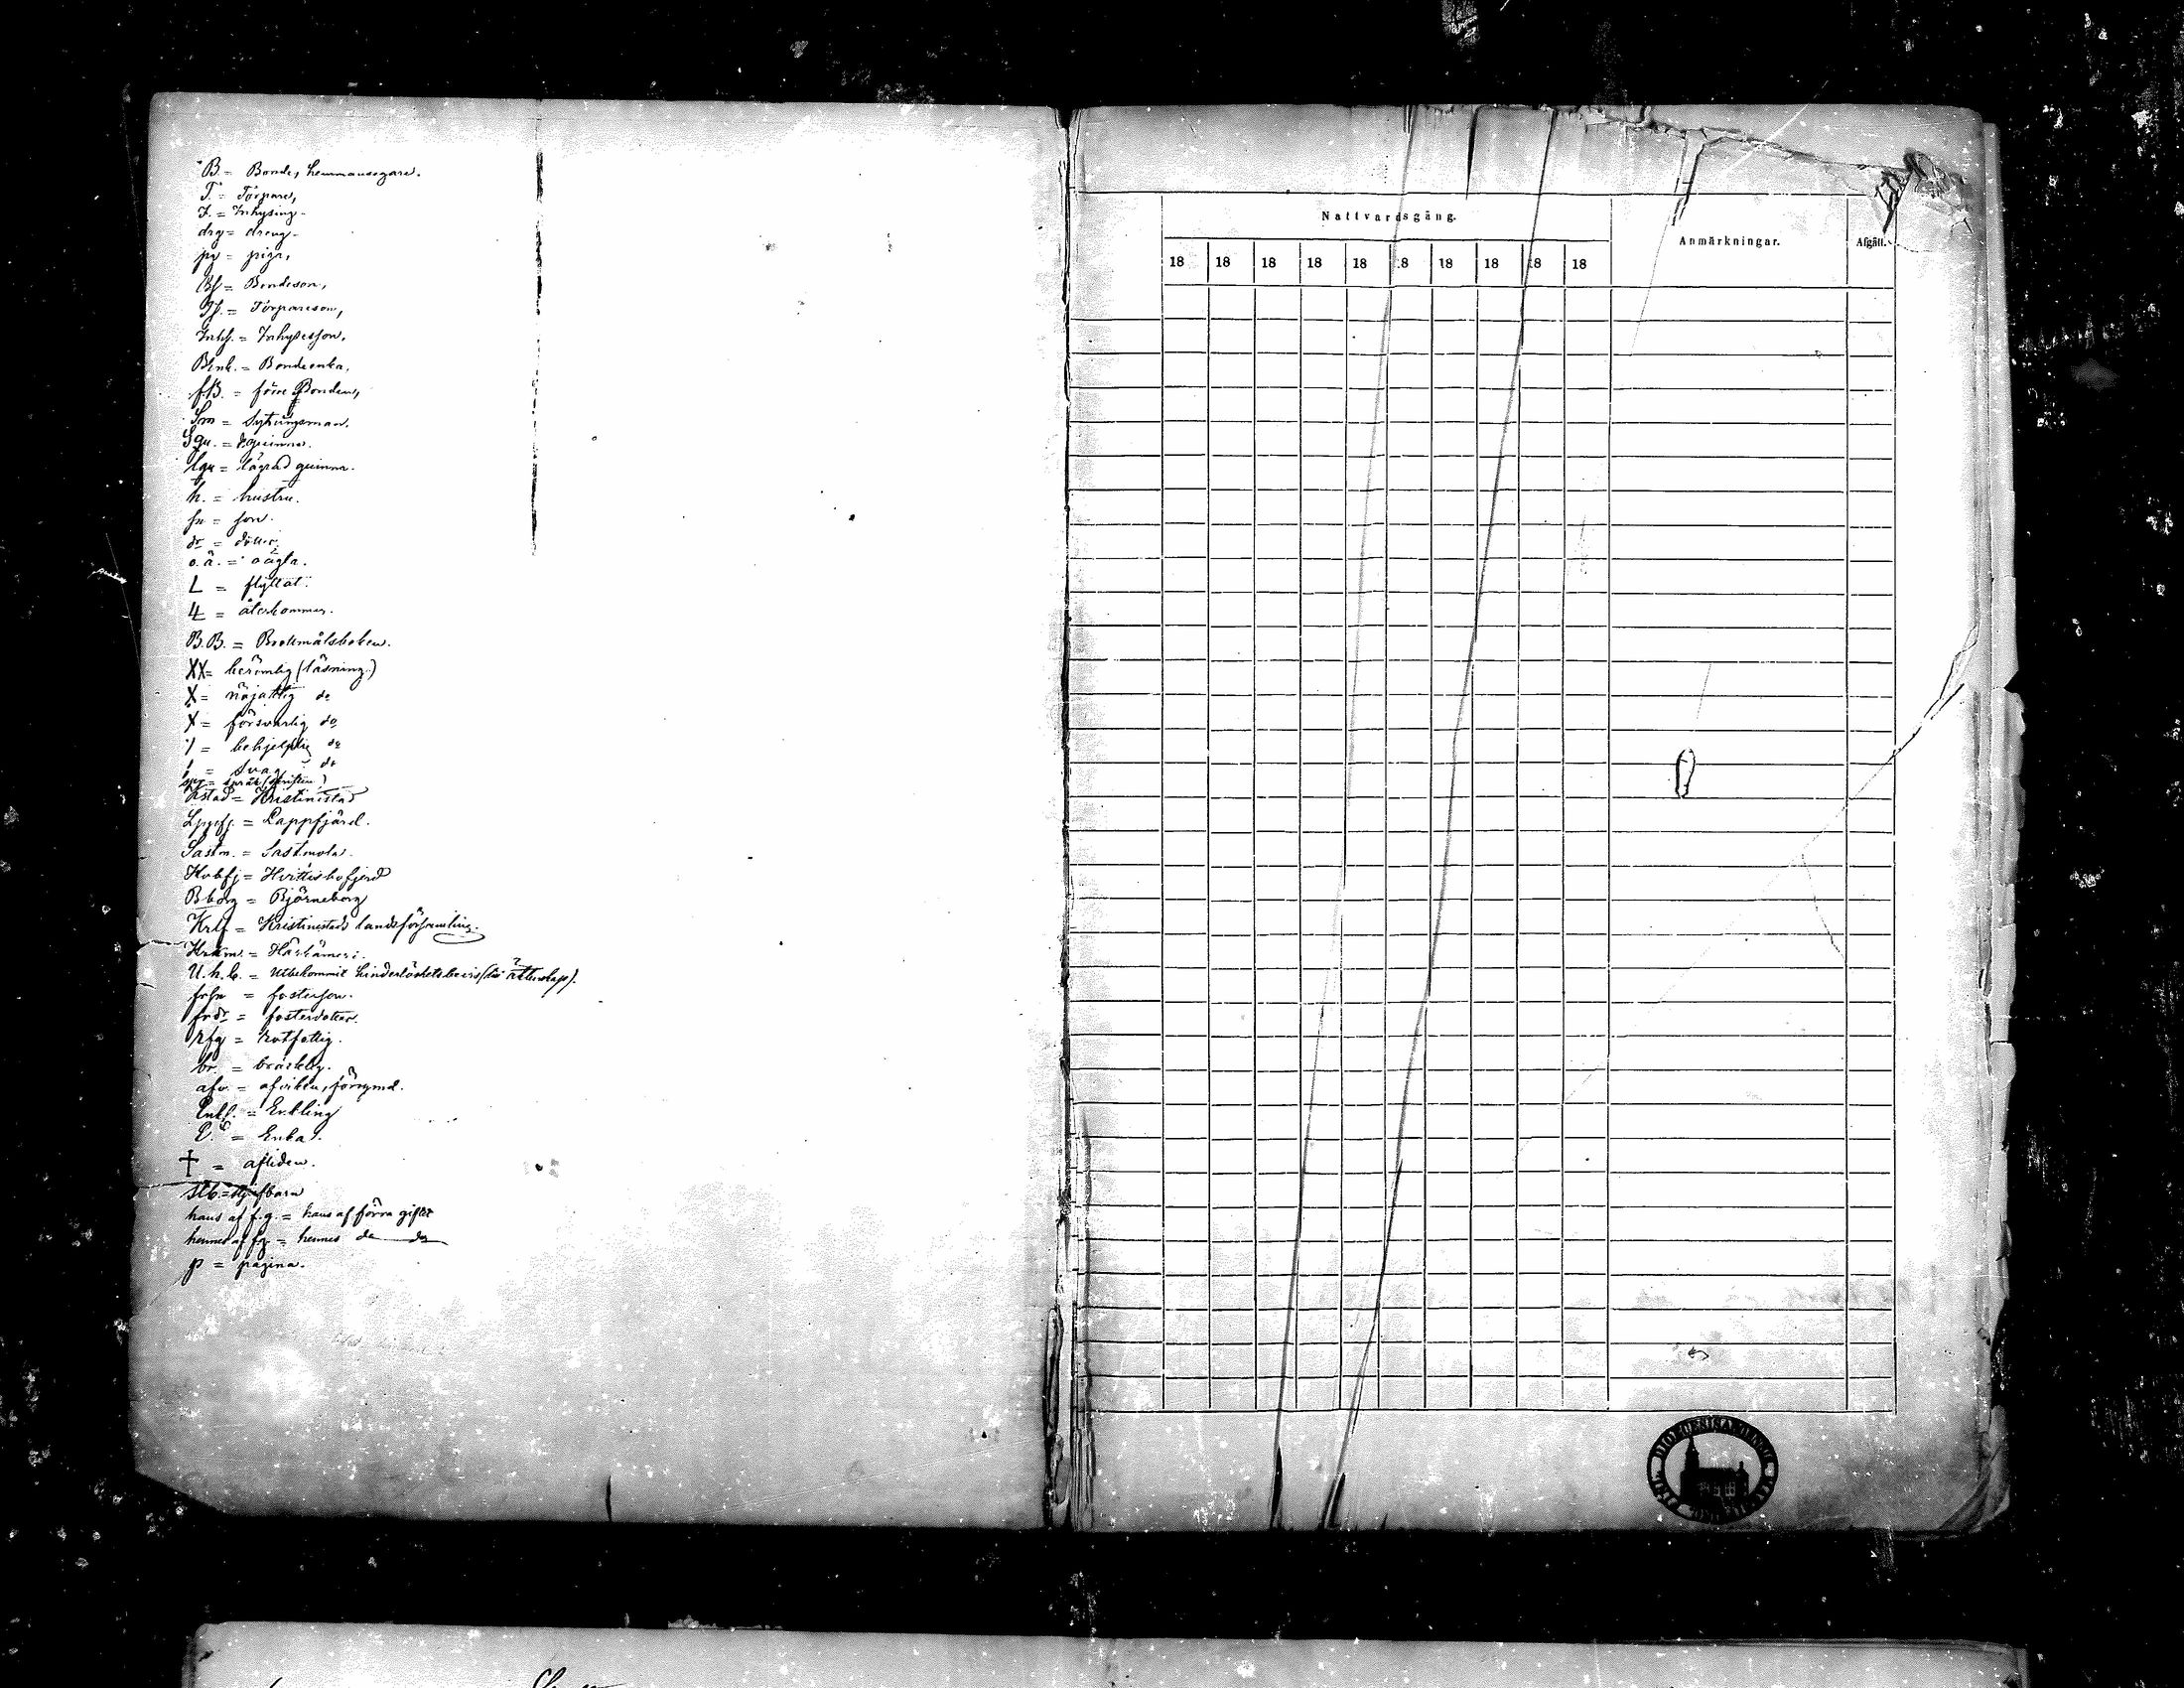 B. = Bonde, hemmansegare.
T. = Torpare,
I. = Inhysing.
drg = dreng.
pg = piga,
Bs = Bondeson,
Ts. = Torpareson,
Inhs. = Inhysesson.
Benk. = Bondeenka,
fB. = förre Bonden,
Sm = Sytningsman.
Sqv. = d:o qvinna.
lqv = lägrad qvinna.
h. = hustru.
sn = son.
dr = dotter.
o.ä. = oägta.
L = flyttat.
4 = återkommen.
B.B. = Brottmålsboken.
XX = berömlig (läsning.)
X = nöjaktig do
X = försvarlig do
7 = behjelplig do
1 = svag do
Kstad = Kristinestad
Lppfj. = Lappfjärd.
Sastm. = Sastmola.
Hvbfj = Hvittisbofjerd
Bborg = Björneborg
Krlf = Kristinestads landsförsamling.
U.h.b. = utbekommit hinderlöshetsbevis (för ättenskap).
frsn = fosterson.
frdr = fosterdotter.
rfg = rotfattig.
br. = bräcklig.
afv. = afviken, förrymd.
Enkl. = Enkling
E. = Enka.
† = afliden.
stb. = styfbarn
hans af f.g. = hans af förra giftet
hennes af fg = hennes do do
p = pagina.
Nattvardsgång.
Anmärkningar.
Afgått.
18 18 18 18 18 18 18 18 18 18